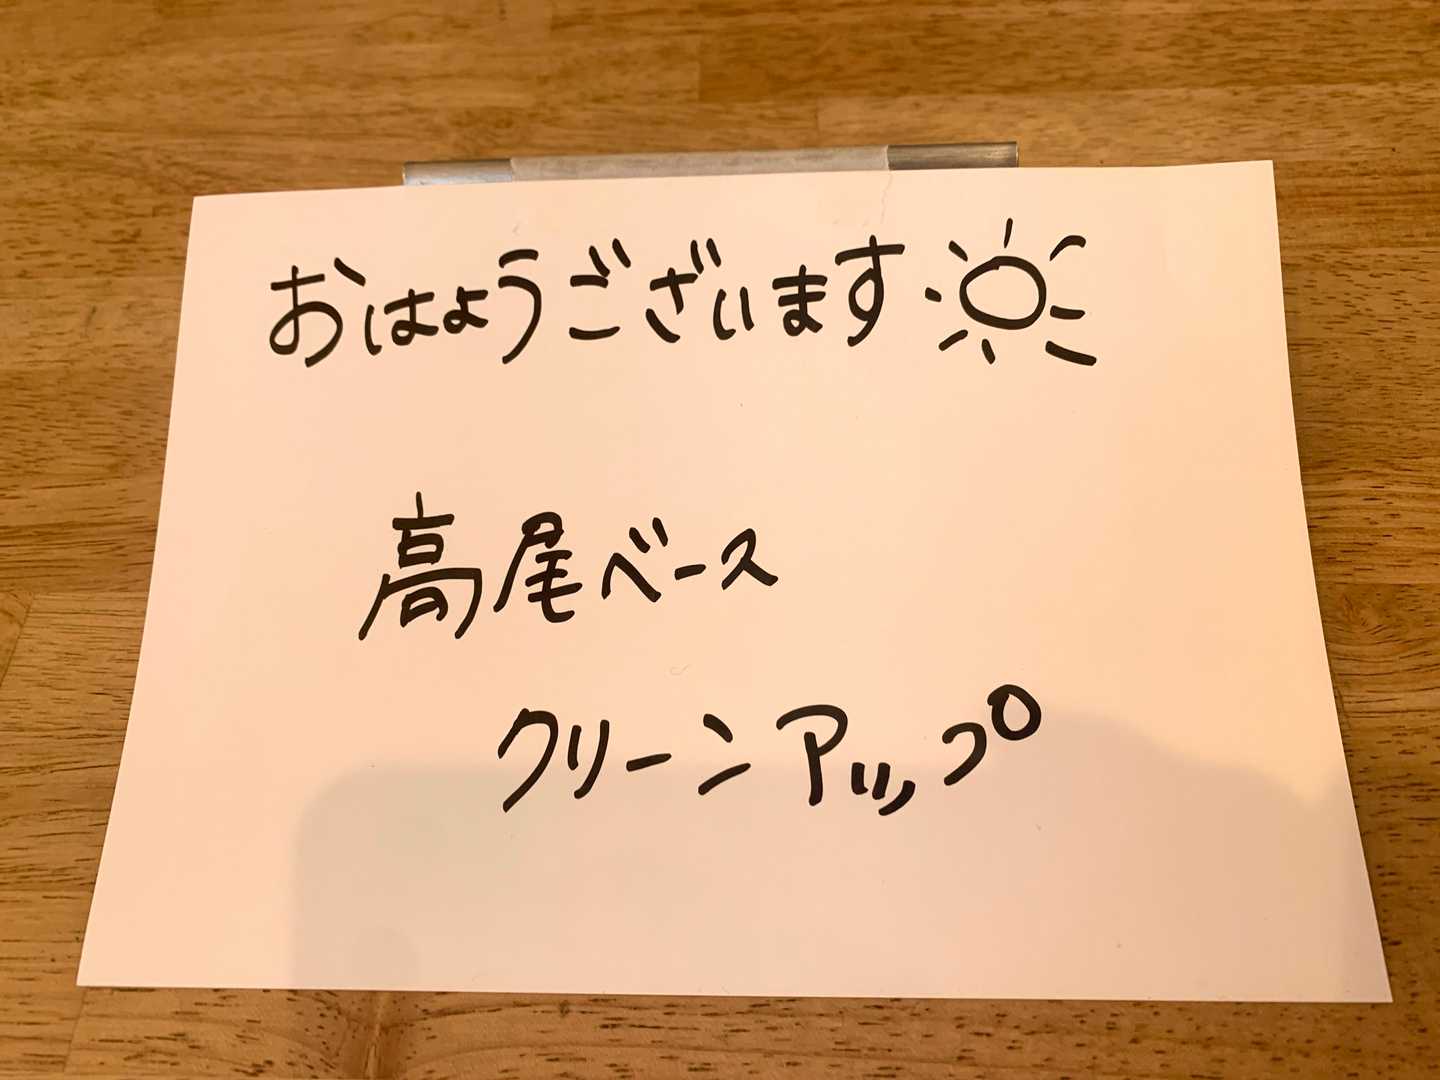 おはようございます
高尾ベース
クリーンアップ